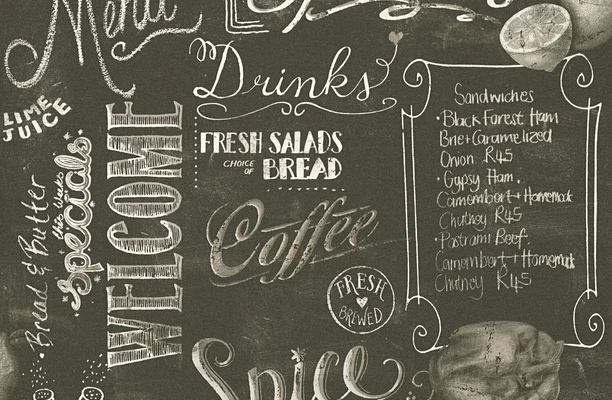 Menu
LIME
JUICE
Bread & Butter
this weeks
Specials
WELCOME
Drinks
FRESH SALADS
CHOICE OF BREAD
Coffee
FRESH
BREWED
Spice
Sandwiches
• Black Forest Ham
Brie + Caramelized
Onion R45
• Gypsy Ham,
Camembert + Homemade
Chutney R45
• Pastrami Beef,
Camembert + Homemade
Chutney R45